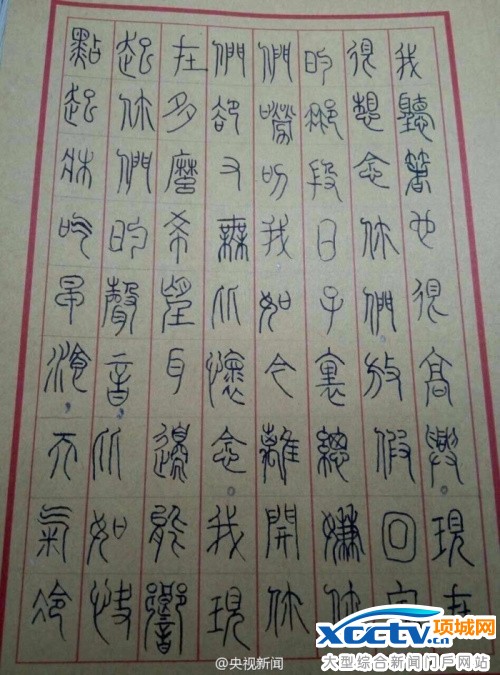 我聽箸也很高興。現在
很想念你們。放假回家
的那段日子裏總嫌你
們嘮叨我如今離開你
們卻又無比懷念。我現
在多麼希望身邊能響
起你們的聲音，比如快
點起床吃早湌，天氣冷
@央视新闻
XCCTV.cn 项城网
大型综合新闻门户网站